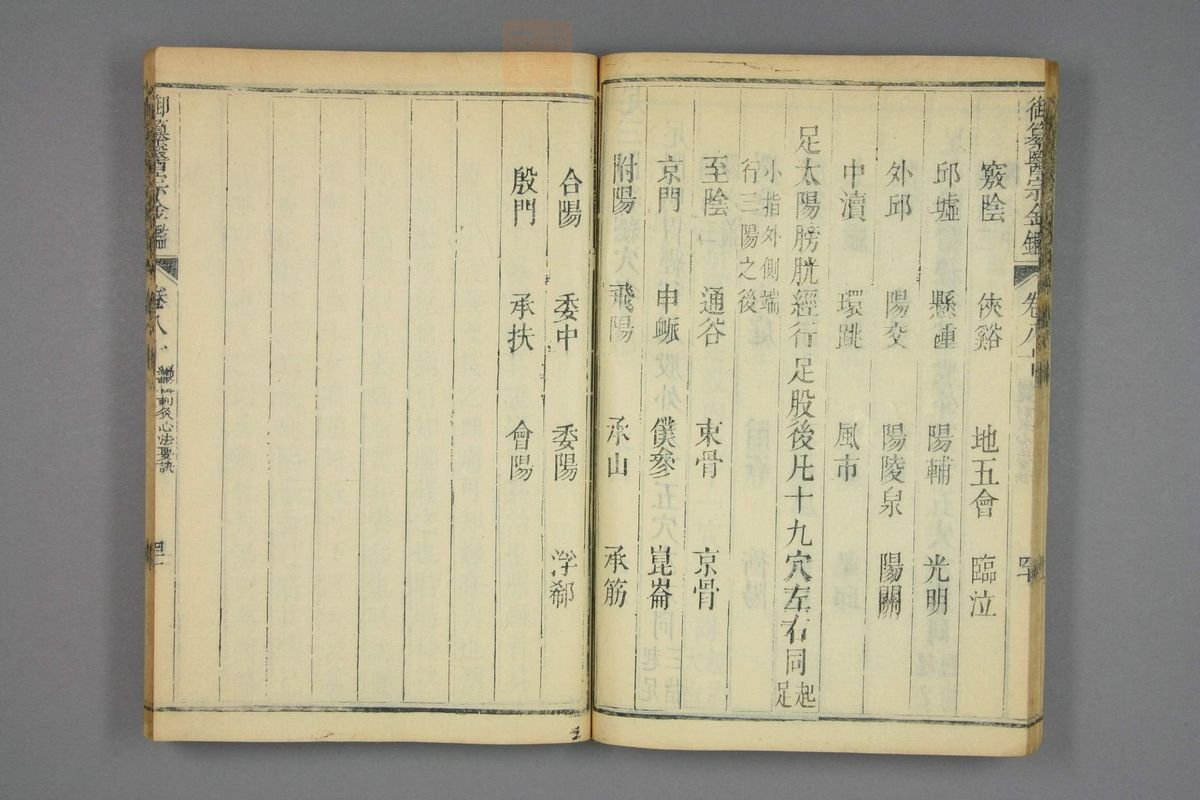 御纂醫宗金鑑
卷八十
竅陰 俠谿 地五會 臨泣
邱墟 懸鍾 陽輔 光明
外邱 陽交 陽陵泉 陽關
中瀆 環跳 風市
足太陽膀胱經行足股後凡十九穴左右同起足
小指外側端
行三陽之後
至陰 通谷 束骨 京骨
京門 申脈 僕參 崑崙
附陽 飛陽 承山 承筋
合陽 委中 委陽 浮郄
殷門 承扶 會陽
御纂醫宗金鑑
卷八十
刺灸心法要訣